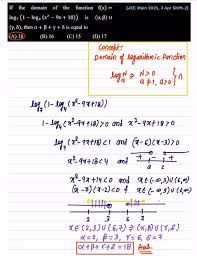 If the domain of the function f(x) =
log₇ (1 − log₄ (x² − 9x + 18)) is (α, β) ∪
(γ, δ), then α + β + γ + δ is equal to
[JEE Main 2025, 3 Apr Shift-2]
(A) 18 (B) 16 (C) 15 (D) 17
Concept:
Domain of logarithmic function
log N a ⇒ N>0
a≠1, a>0 } ∩
(1-log₄(x²-9x+18))
1-log₄(x²-9x+18)>0 and x²-9x+18>0
log₄(x²-9x+18)<1 (x-6)(x-3)>0
x²-9x+18<4 and
+ - +
3 6
x²-9x+14<0 and x∈(-∞,3)∪(6,∞)
(x-7)(x-2)<0 ∩ x∈(-∞,3)∪(6,∞)
2 3 6 7
x∈(2,3)∪(6,7) ⇒ (α,β)∪(γ,δ)
α=2, β=3, γ=6, δ=7
α+β+γ+δ=18